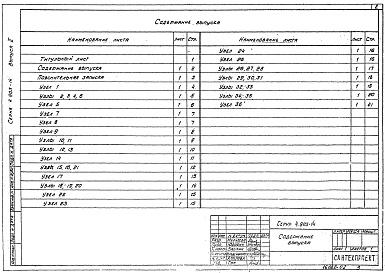 Содержание выпуска
Наименование листа Лист Стр.
Титульный лист 1
Содержание выпуска 1 2
Пояснительная записка 1 3
Узел 1 1 4
Узлы 2, 3, 4, 5 1 5
Узел 6 1 6
Узел 7 1 7
Узел 8 1 7
Узел 9 1 8
Узлы 10, 11 1 9
Узлы 12, 13 1 10
Узел 14 1 11
Узлы 15, 16, 21 1 12
Узел 17 1 13
Узлы 18, 19, 20 1 14
Узел 22 1 15
Узел 23 1 15
Наименование листа Лист Стр.
Узел 24 1 16
Узел 25 1 16
Узлы 26, 27, 28 1 17
Узлы 29, 30, 31 1 18
Узлы 32, 33 1 19
Узлы 34, 35 1 20
Узел 36 1 21
Серия 4.903-14 Выпуск 2
Серия 4.903-14
Содержание
выпуска
САНТЕХПРОЕКТ